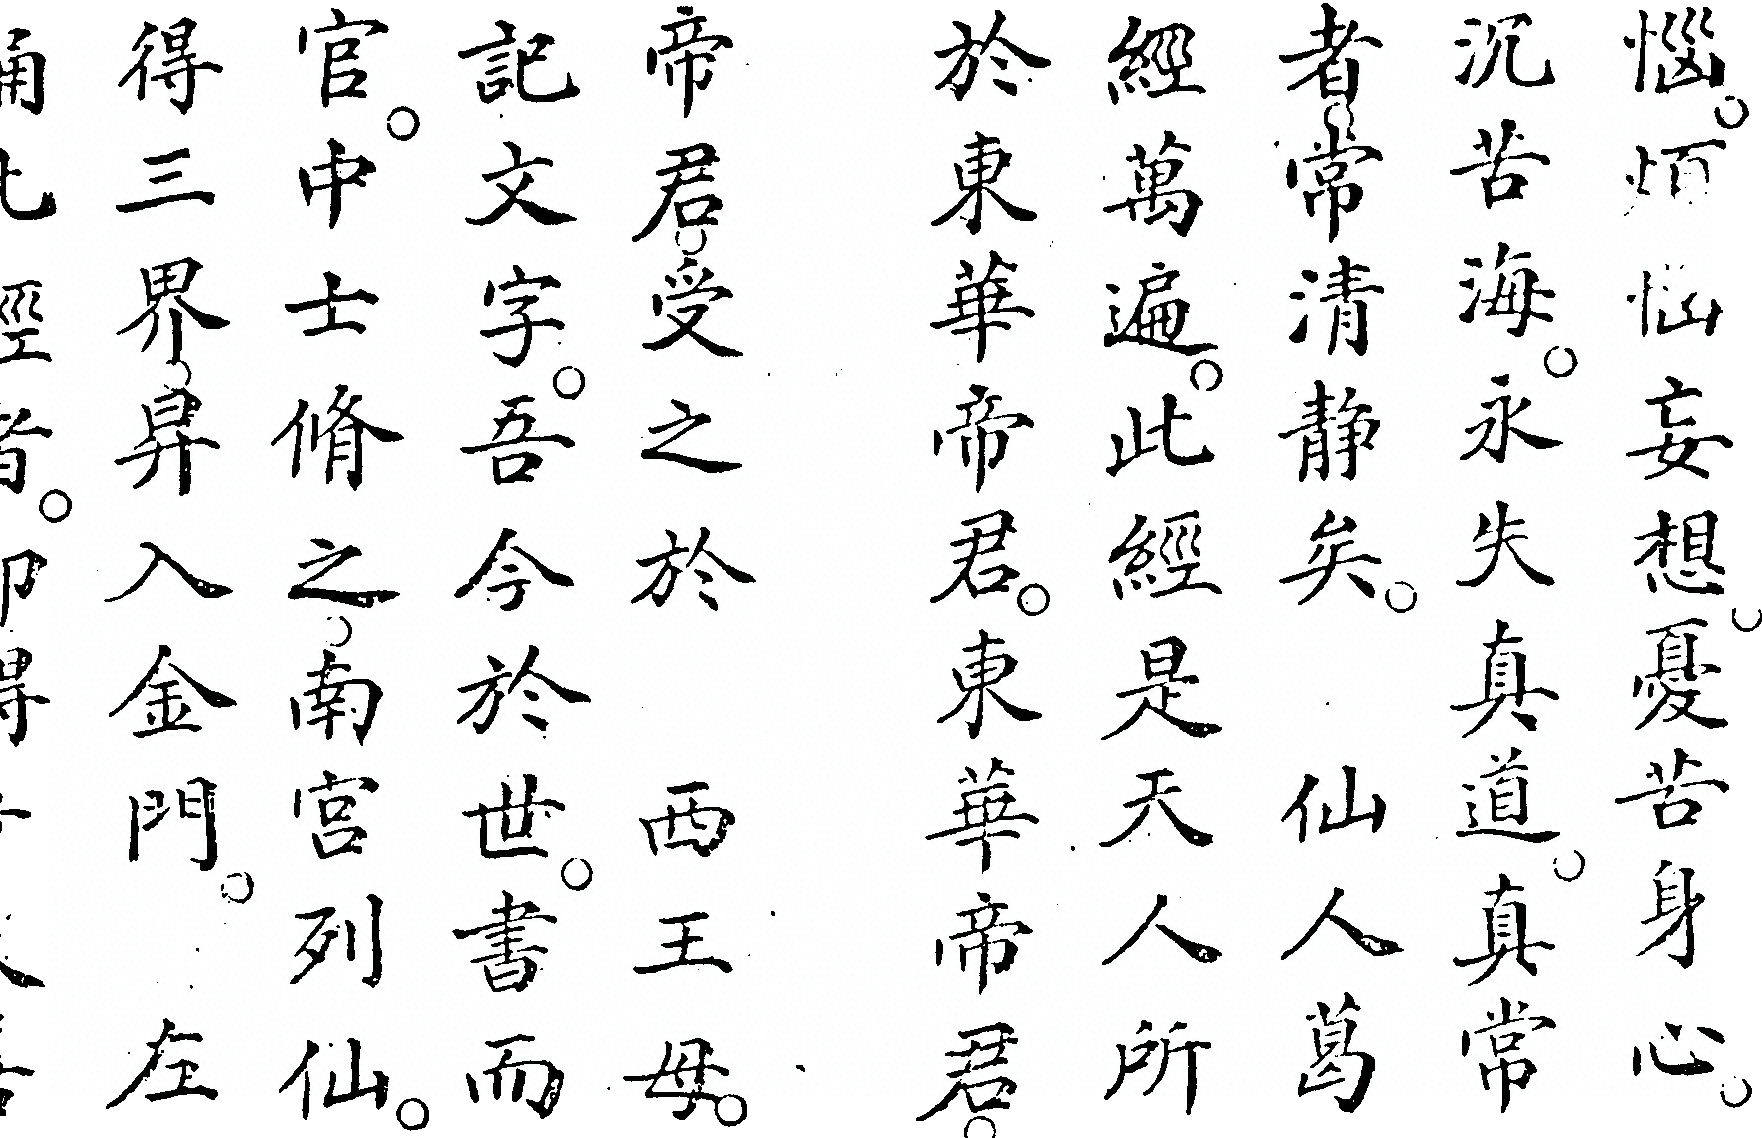 惱。煩惱妄想。憂苦身心。
沉苦海。永失真道。真常
者。常清静矣。 仙人葛
經萬遍。此經是天人所
於東華帝君。東華帝君。
帝君。受之於 西王母。
記文字。吾今於世。書而
官。中士脩之。南宮列仙。
得三界。昇入金門。 左
誦此經者。即得